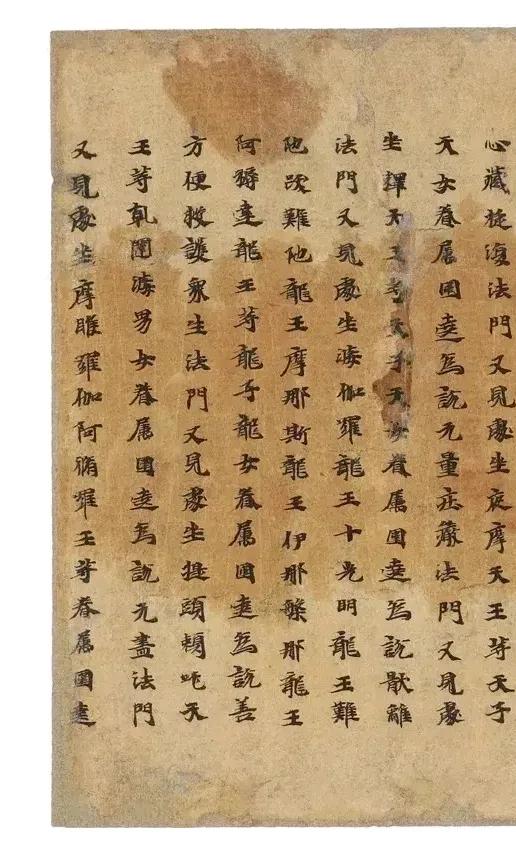 心藏旋復法門又見處坐夜摩天王等天子
天女眷屬圍遶為說无量莊嚴法門又見處
坐釋天王等天子天女眷屬圍遶為說猒離
法門又見處坐娑伽羅龍王十光明龍王難
他跋難他龍王摩那斯龍王伊那槃那龍王
阿耨達龍王等龍子龍女眷屬圍遶為說善
方便救護衆生法門又見處坐提頭賴吒天
王等乹闥婆男女眷屬圍遶為說无盡法門
又見處坐摩睺羅伽阿脩羅王等眷屬圍遶